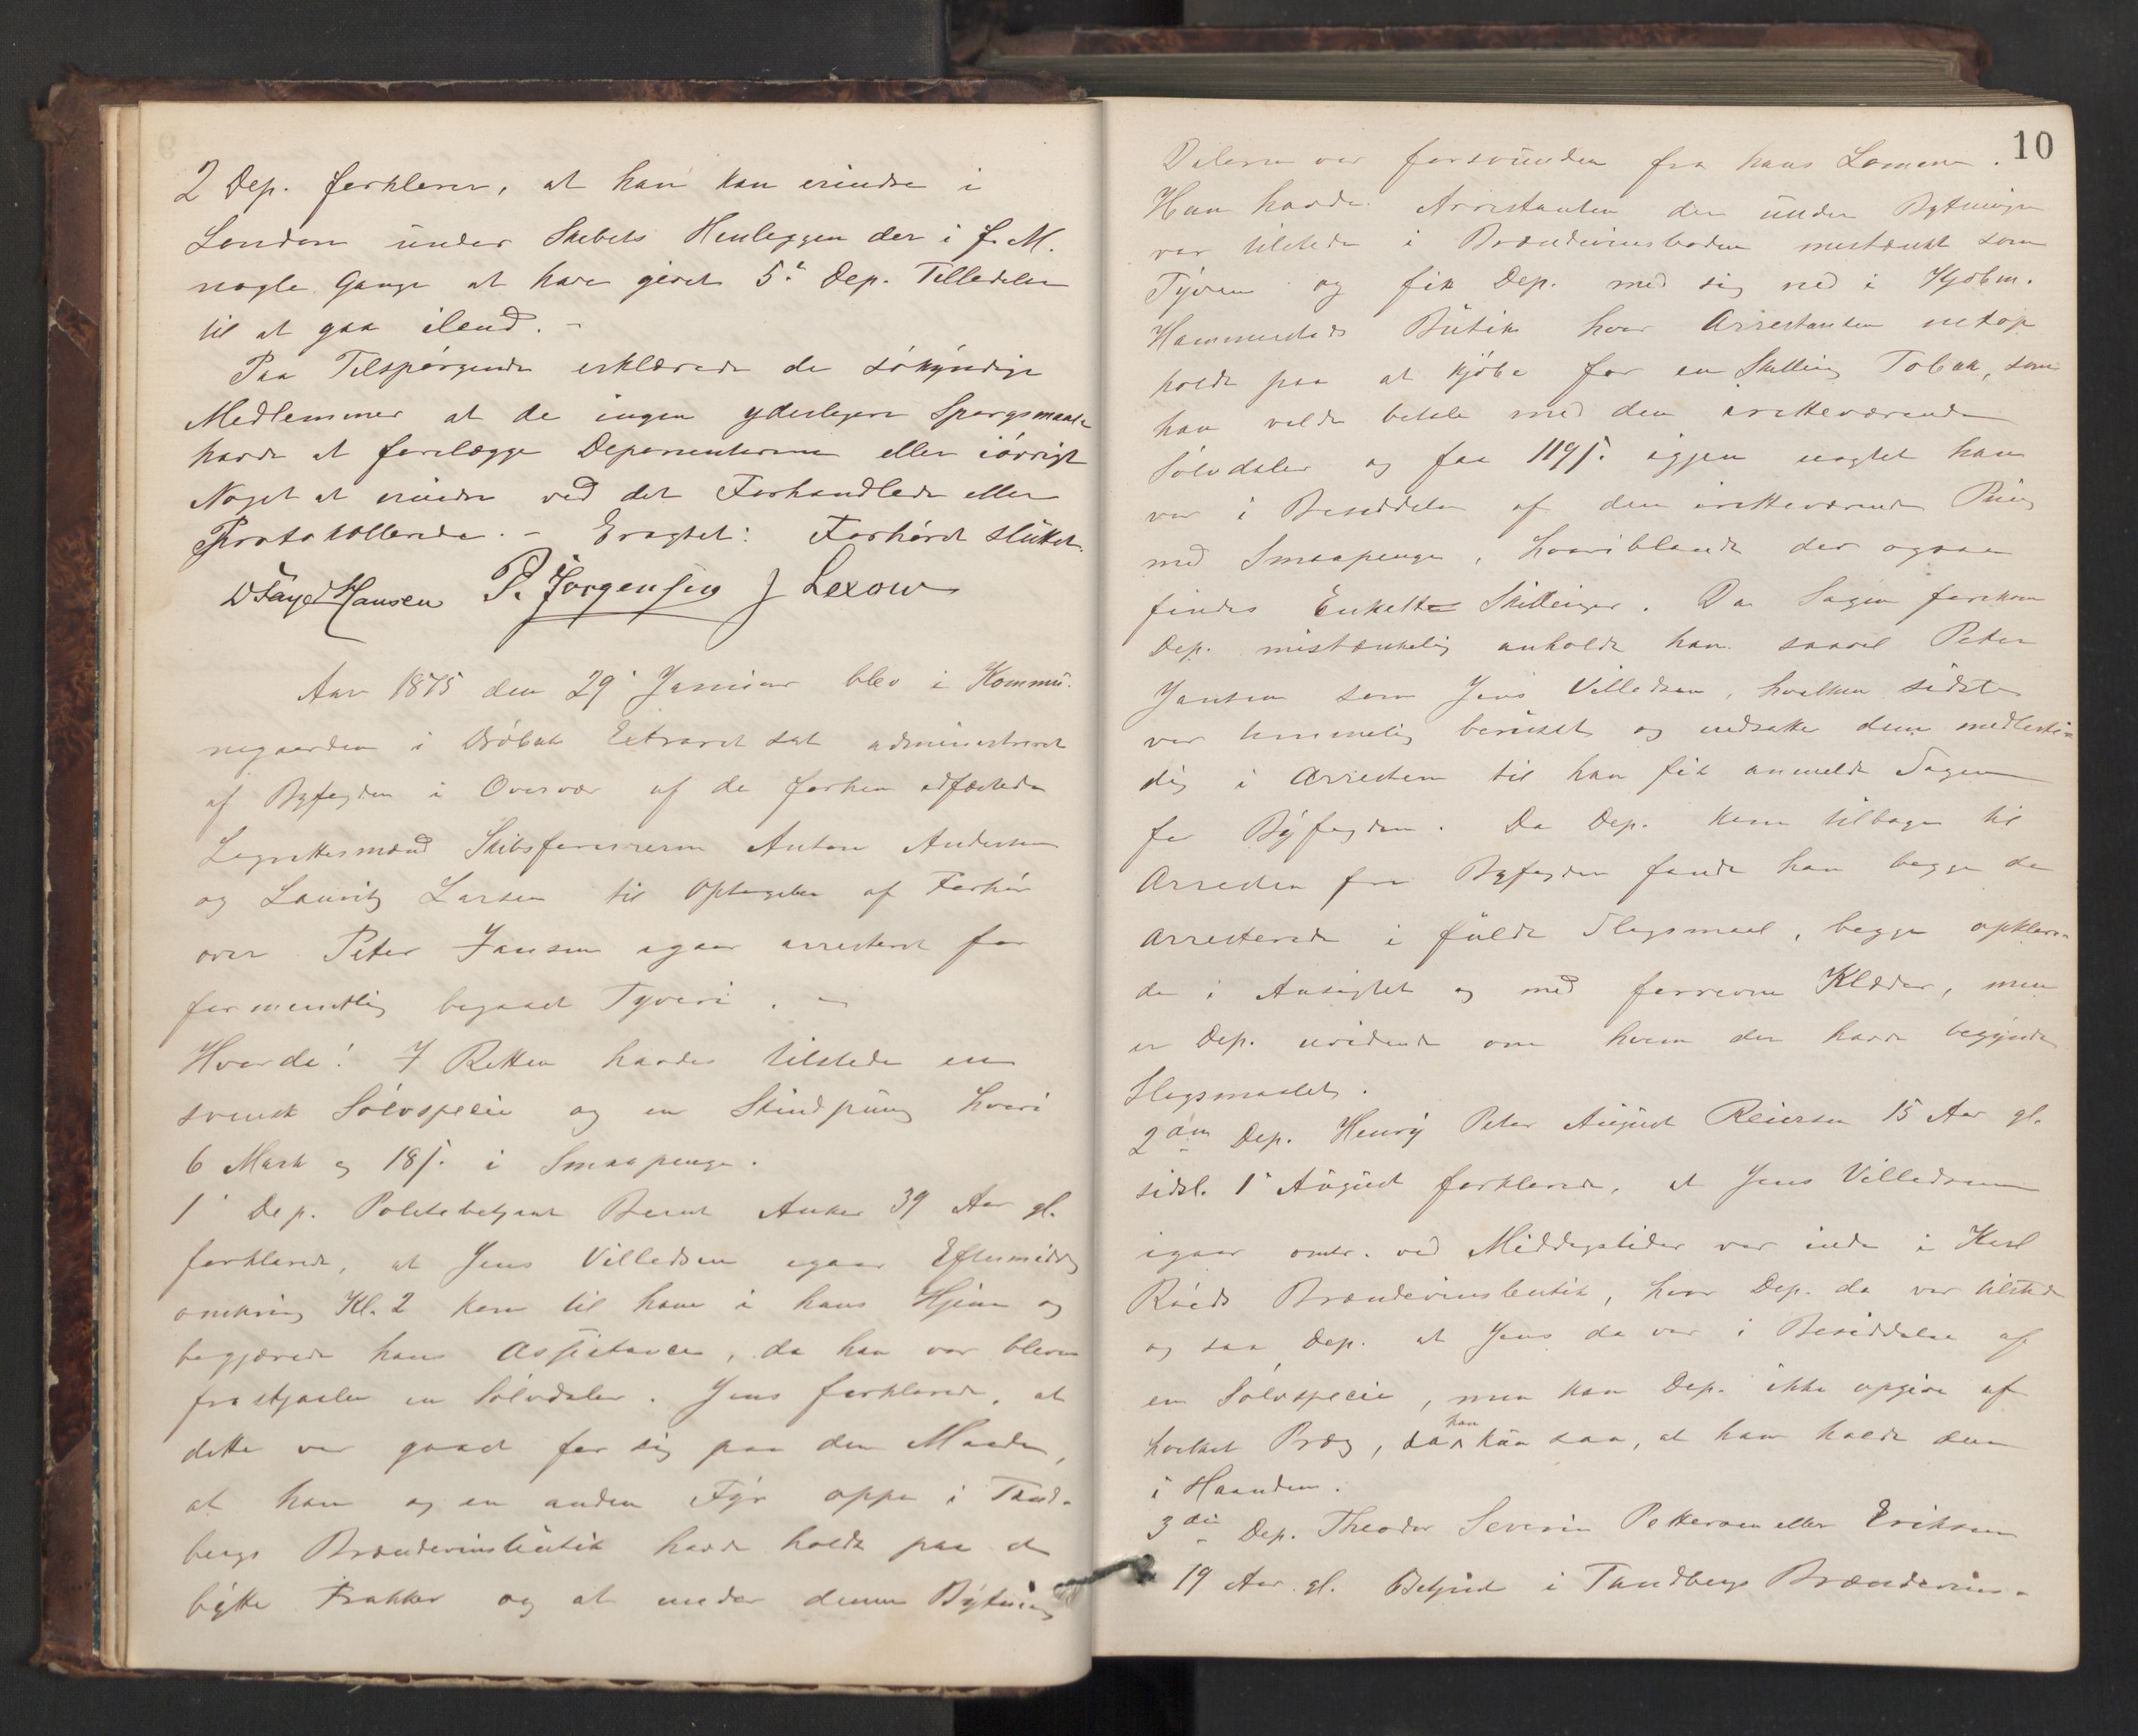 2 Dep. forklarer, at han kan erindre i
London under Skibets Henliggen der i f. M.
nogle Gange at have givet 5' Dep. Tilladelse
til at gaa iland. -
Paa Tilspørgende erklærede de søkyndige
Medlemmer at de ingen yderligere Spørgsmaale
havde at forelægge Deponenterne eller iøvrigt
Noget at erindre ved det Forhandlede eller
Protokollerede. - Eragtet: Forhøret sluttet.
Hansen P. Jørgensen J Lexow
Aar 1875 den 29' Januar blev i Kommu-
negaarden i Drøbak Extraret sat administreret
af Byfogden i Overvær af de forhen edfæstede
Lagrettesmænd Skibsførerne Anton Andersen
og Lauritz Larsen til Optagelse af Forhør
over Peter Jansen igaar arresteret for
formentlig begaaet Tyveri. -
Hvorda! I Retten havdes tilstede en
svensk Sølvspecie og en Skindpung hvori
6 Mark og 18 s. i Smaapenge.
1' Dep. Politibetjent Bernt Anker 39 Aar gl.
forklarede, at Jens Villadsen igaar Eftermiddag
omkring Kl. 2 kom til ham i hans Hjem og
begjærede hans Assistance, da han var bleven
frastjaalen en Sølvdaler. Jens forklarede, at
dette var gaaet for sig paa den Maade,
at han og en anden Fyr oppe i Tand-
bergs Brændevinsbutik havde holdt paa at
bytte Frakker og at under denne Bytning
10
Daleren var forsvunden fra hans Lomme.
Han havde Arrestanten der under Bytningen
var tilstede i Brændevinsboden mistænkt som
Tyven og fik Dep. med sig ned i Kjøbm.
Hammerstads Butik hvor Arrestanten netop
holdt paa at kjøbe for en Skilling Tobak, som
han vilde betale med den iretteværende
Sølvdaler og faa 119 s. igjen uagtet han
var i Besiddelse af den iretteværende Pung
med Smaapenge, hvoriblandt der ogsaa
findes Enkelte Skillinger. Da Sagen forekom
Dep. mistænkelig anholdt han saavel Peter
Jansen som Jens Villadsen, hvilken sidste
var temmelig beruset og indsatte dem midlerti-
dig i Arresten til han fik anmeldt Sagen
for Byfogden. Da Dep. kom tilbage til
Arresten fra Byfogden fandt han begge de
Arresterede i fuldt Slagsmaal, begge opklore-
de i Ansigtet og med forrevne Klæder, men
er Dep. uvidende om hvem der havde begyndt
Slagsmaalet.
2den Dep. Henry Peter August Reiersen 15 Aar gl.
sidst. 1' August forklarede, at Jens Villadsen
igaar omtr. ved Middagstider var inde i Karl
Røeds Brændevinsbutik, hvor Dep. da var tilstede
og saa Dep. at Jens da var i Besiddelse af
en Sølvspecie, men kan Dep. ikke opgive af
hvilket Præg, da han kun saa, at han holdt den
i Haanden.
3die Dep. Theodor Severin Pettersen eller Eriksen
19 Aar gl. Betjent i Tandbergs Brændevins-